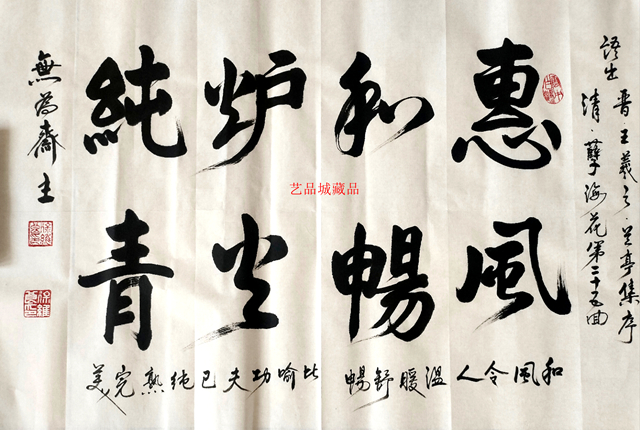 语出 晋·王羲之·兰亭集序
清·孽海花第二十五回
惠風
和暢
炉火
純青
和風令人溫暖舒暢
比喻功夫已纯熟完美
無為齋主
艺品城藏品